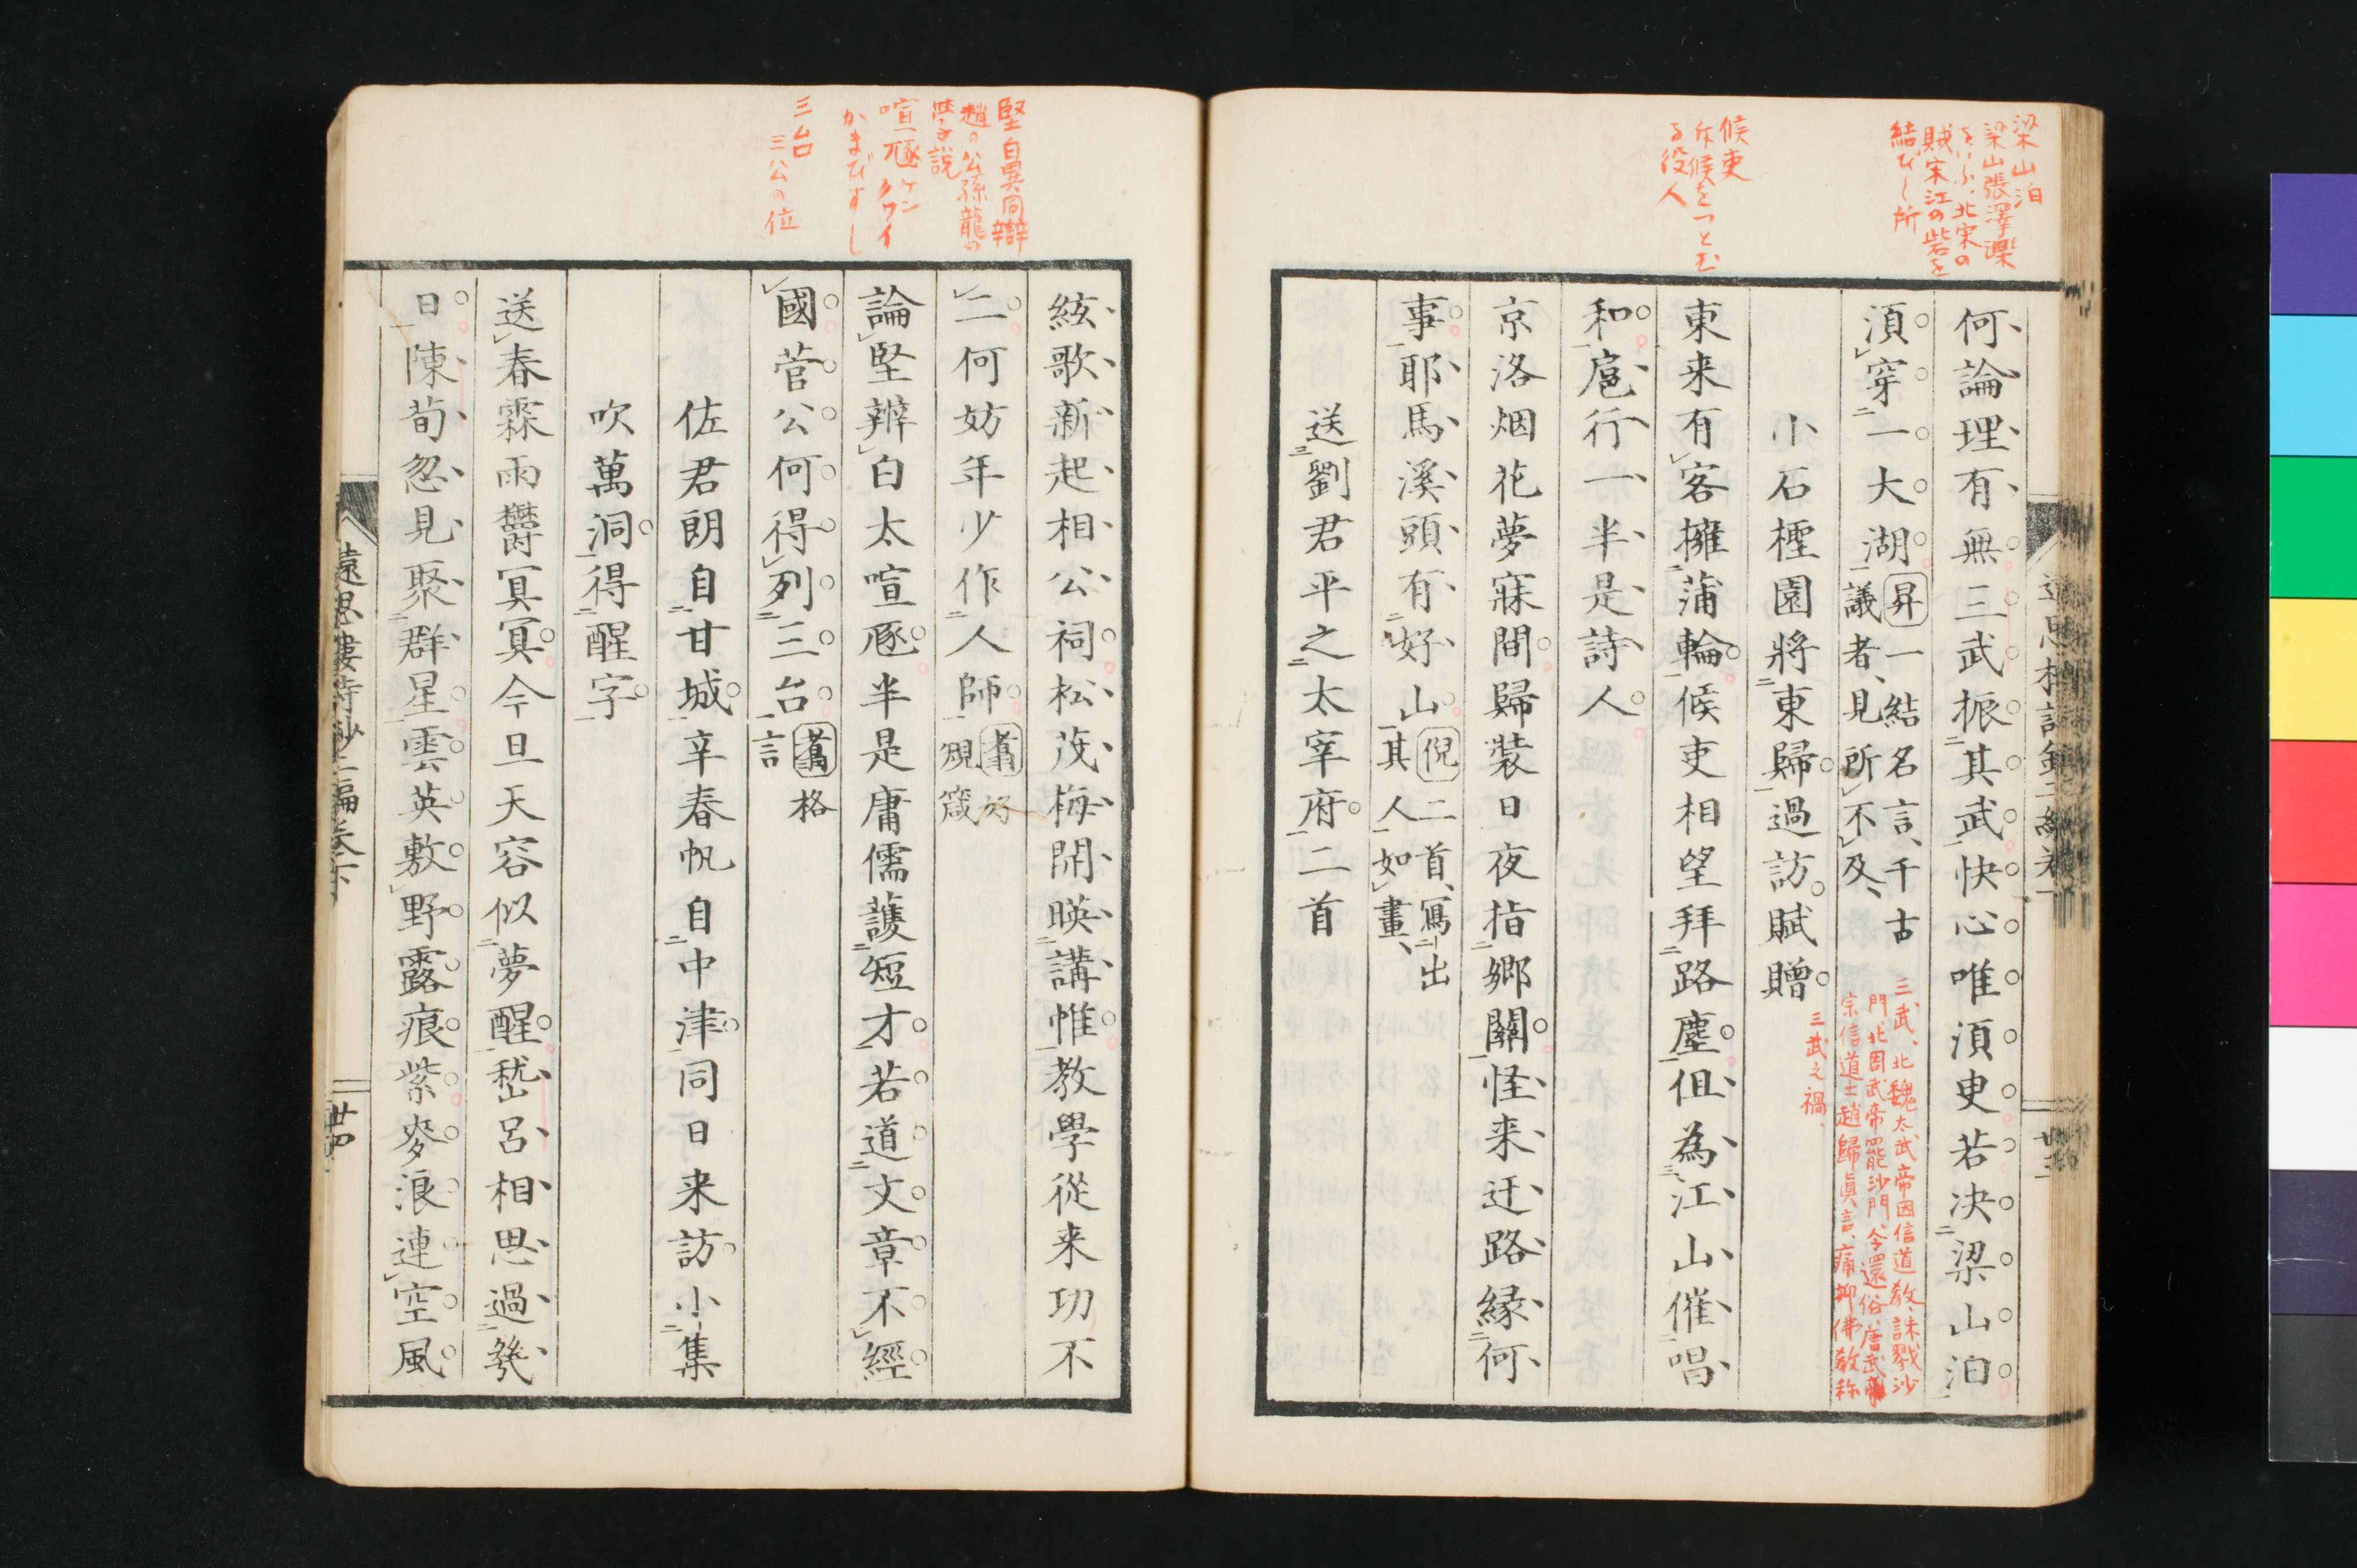 梁山泊
梁山張澤濼
をいふ、北宋の
賊宋江の砦を
結びし所
候吏
斥候をつとむ
る役人
何論理有無三武振其武快心唯須臾若決梁山泊
須穿一大湖
昇一結名言、千古
議者、見所不及、
三武、北魏太武帝因信道教、誅戮沙
門、北周武帝罷沙門、令還俗、唐武帝
宗信道士趙歸眞言、痛抑佛教称
三武之禍、
小石檉園將東歸過訪賦贈
東来有客擁蒲輪候吏相望拜路塵但為江山催唱
和扈行一半是詩人
京洛烟花夢寐間歸裝日夜指鄉關怪来迂路緣何
事耶馬溪頭有好山
倪二首、寫出
其人如畫、
送劉君平之太宰府二首
堅白異同辯
趙の公孫龍の
學說
喧豗 ケン
クワイ
かまびすし
三台
三公の位
絃歌新起相公祠松茂梅開暎講帷教學從来功不
二何妨年少作人師
好
規箴
論堅辨白太喧豗半是庸儒護短才若道文章不經
國菅公何得列三台
格
言
佐君朗自甘城辛春帆自中津同日来訪小集
吹萬洞得醒字
送春霖雨鬱冥冥今旦天容似夢醒嵇呂相思過幾
日陳荀忽見聚群星雲英敷野露痕紫麥浪連空風
遠思樓詩鈔二編卷下
廿四